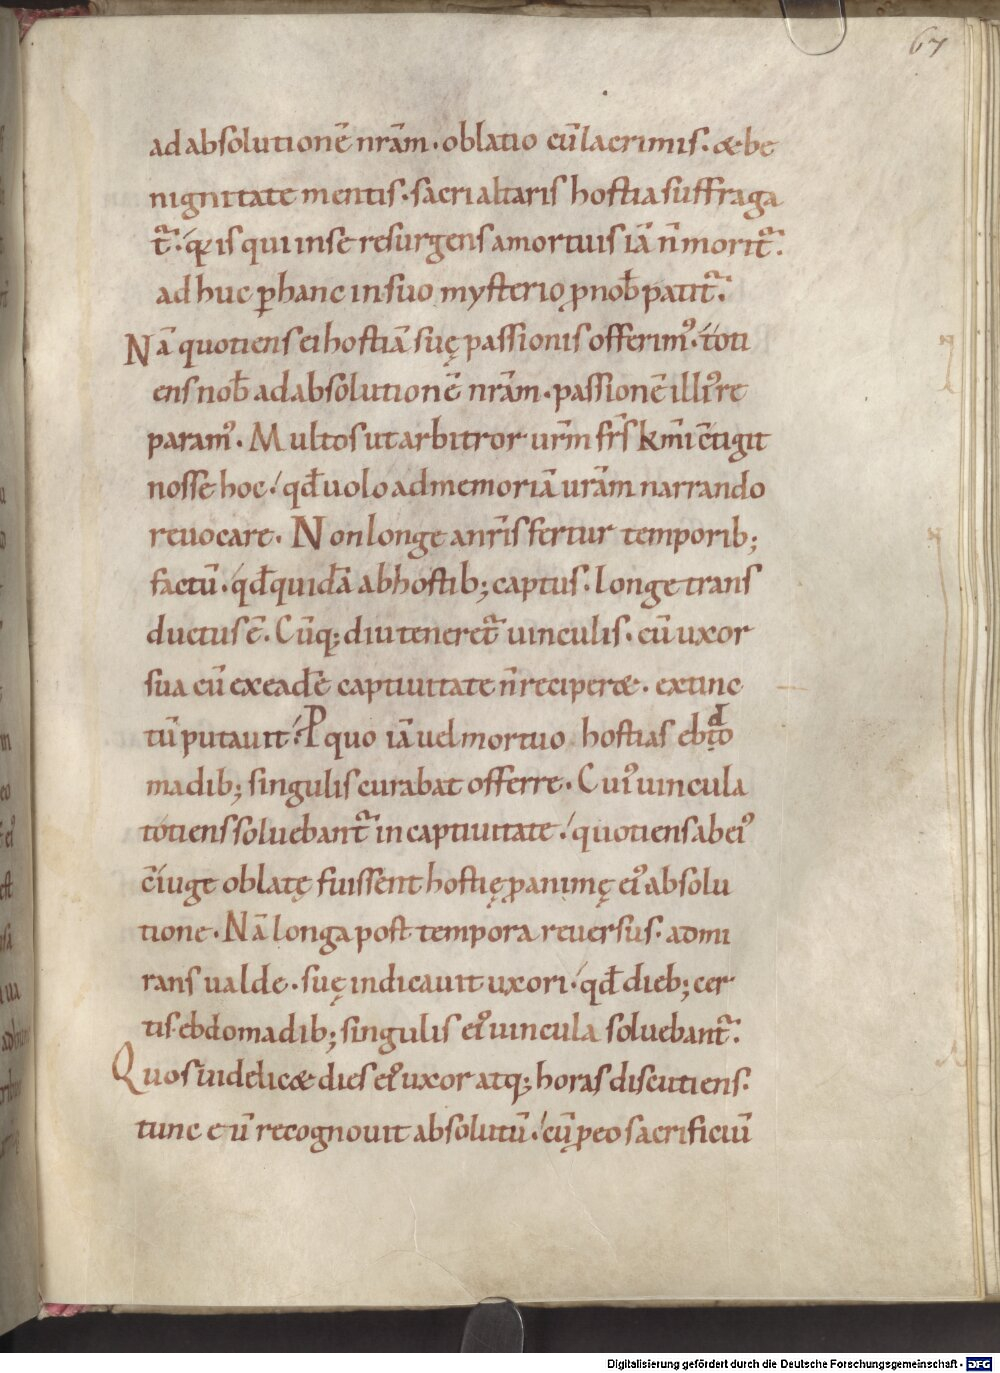 67
ad absolutionē nr̄am · oblatio cū lacrimis · & be
nignitate mentis · sacri altaris hostia suffraga
t᷑ · q̄ is qui in se resurgens a mortuis iā n̄ morit᷑ ·
ad huc ꝑ hanc in suo mysterio ꝓ nob̄ patit᷑ ·
Nā quotiens ei hostiā suę passionis offerimꝰ · toti
ens nob̄ ad absolutionē nr̄am · passionē illiꝰ re
paramꝰ · Multos ut arbitror ur̄m fr̄s km̄i c̄tigit
nosse hoc · qd̄ uolo ad memoriā ur̄am narrando
reuocare · Non longe a nr̄is fertur temporib;
factū · qd̄ quidā ab hostib; captus · longe trans
ductus ē · Cūq; diu teneret᷑ uinculis · cū uxor
sua cū ex eadē captiuitate n̄ reciper& · extinc
tū putauit · P quo iā uel mortuo hostias ebdo
madib; singulis curabat offerre · Cuiꝰ uincula
totiens soluebant᷑ in captiuitate · quotiens ab eiꝰ
c̄iuge oblatę fuissent hostię ꝓ animę eiꝰ absolu
tione · Nā longa post tempora reuersus · admi
rans ualde · suę indicauit uxori · qd̄ dieb; cer
tis ebdomadib; singulis eiꝰ uincula soluebant᷑ ·
Quos uidelic& dies eiꝰ uxor atq; horas discutiens ·
tunc eū recognouit absolutū · cū ꝓ eo sacrificiū
Digitalisierung gefördert durch die Deutsche Forschungsgemeinschaft - DFG